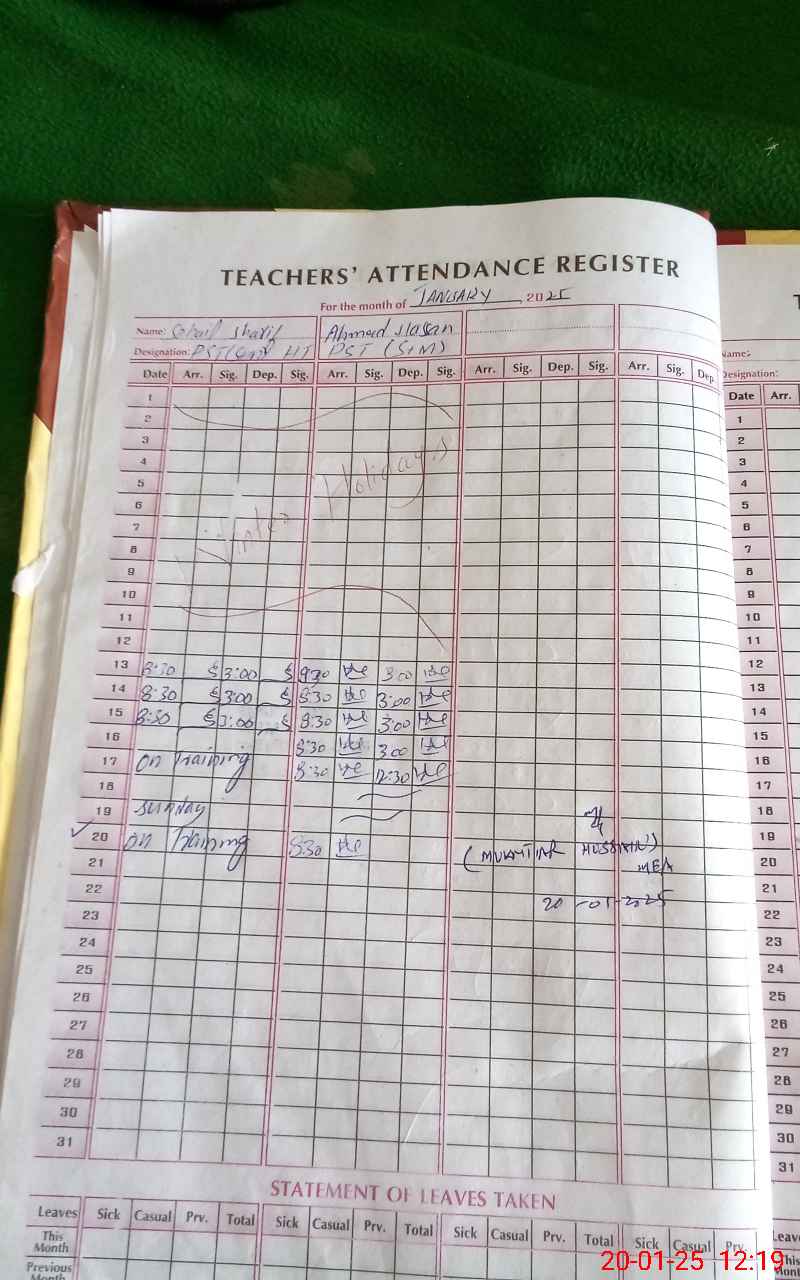 TEACHERS' ATTENDANCE REGISTER
For the month of JANUARY, 2025
Name: Sohail Sharif Ahmed Hassan
Designation: PST HT PST (S&M)
Date Arr. Sig. Dep. Sig. Arr. Sig. Dep. Sig. Arr. Sig. Dep. Sig. Arr. Sig. Dep.
1
2
3
4
5
6
7
8
9
10
11
12
Winter Holidays
13 8:30 3:00 8:30 3:00
14 8:30 3:00 8:30 3:00
15 8:30 3:00 8:30 3:00
16 8:30 3:00
17 On Training 8:30 12:30
18
19 Sunday
20 On Training 8:30
21 (MUKHTIAR HUSSAIN)
MEA
22
20-01-2025
23
24
25
26
27
28
29
30
31
STATEMENT OF LEAVES TAKEN
Leaves Sick Casual Prv. Total Sick Casual Prv. Total Sick Casual Prv. Total Sick Casual Prv.
This Month
Previous Month
Name:
Designation:
Date Arr.
1
2
3
4
5
6
7
8
9
10
11
12
13
14
15
16
17
18
19
20
21
22
23
24
25
26
27
28
29
30
31
Leave
This
20-01-25 12:19